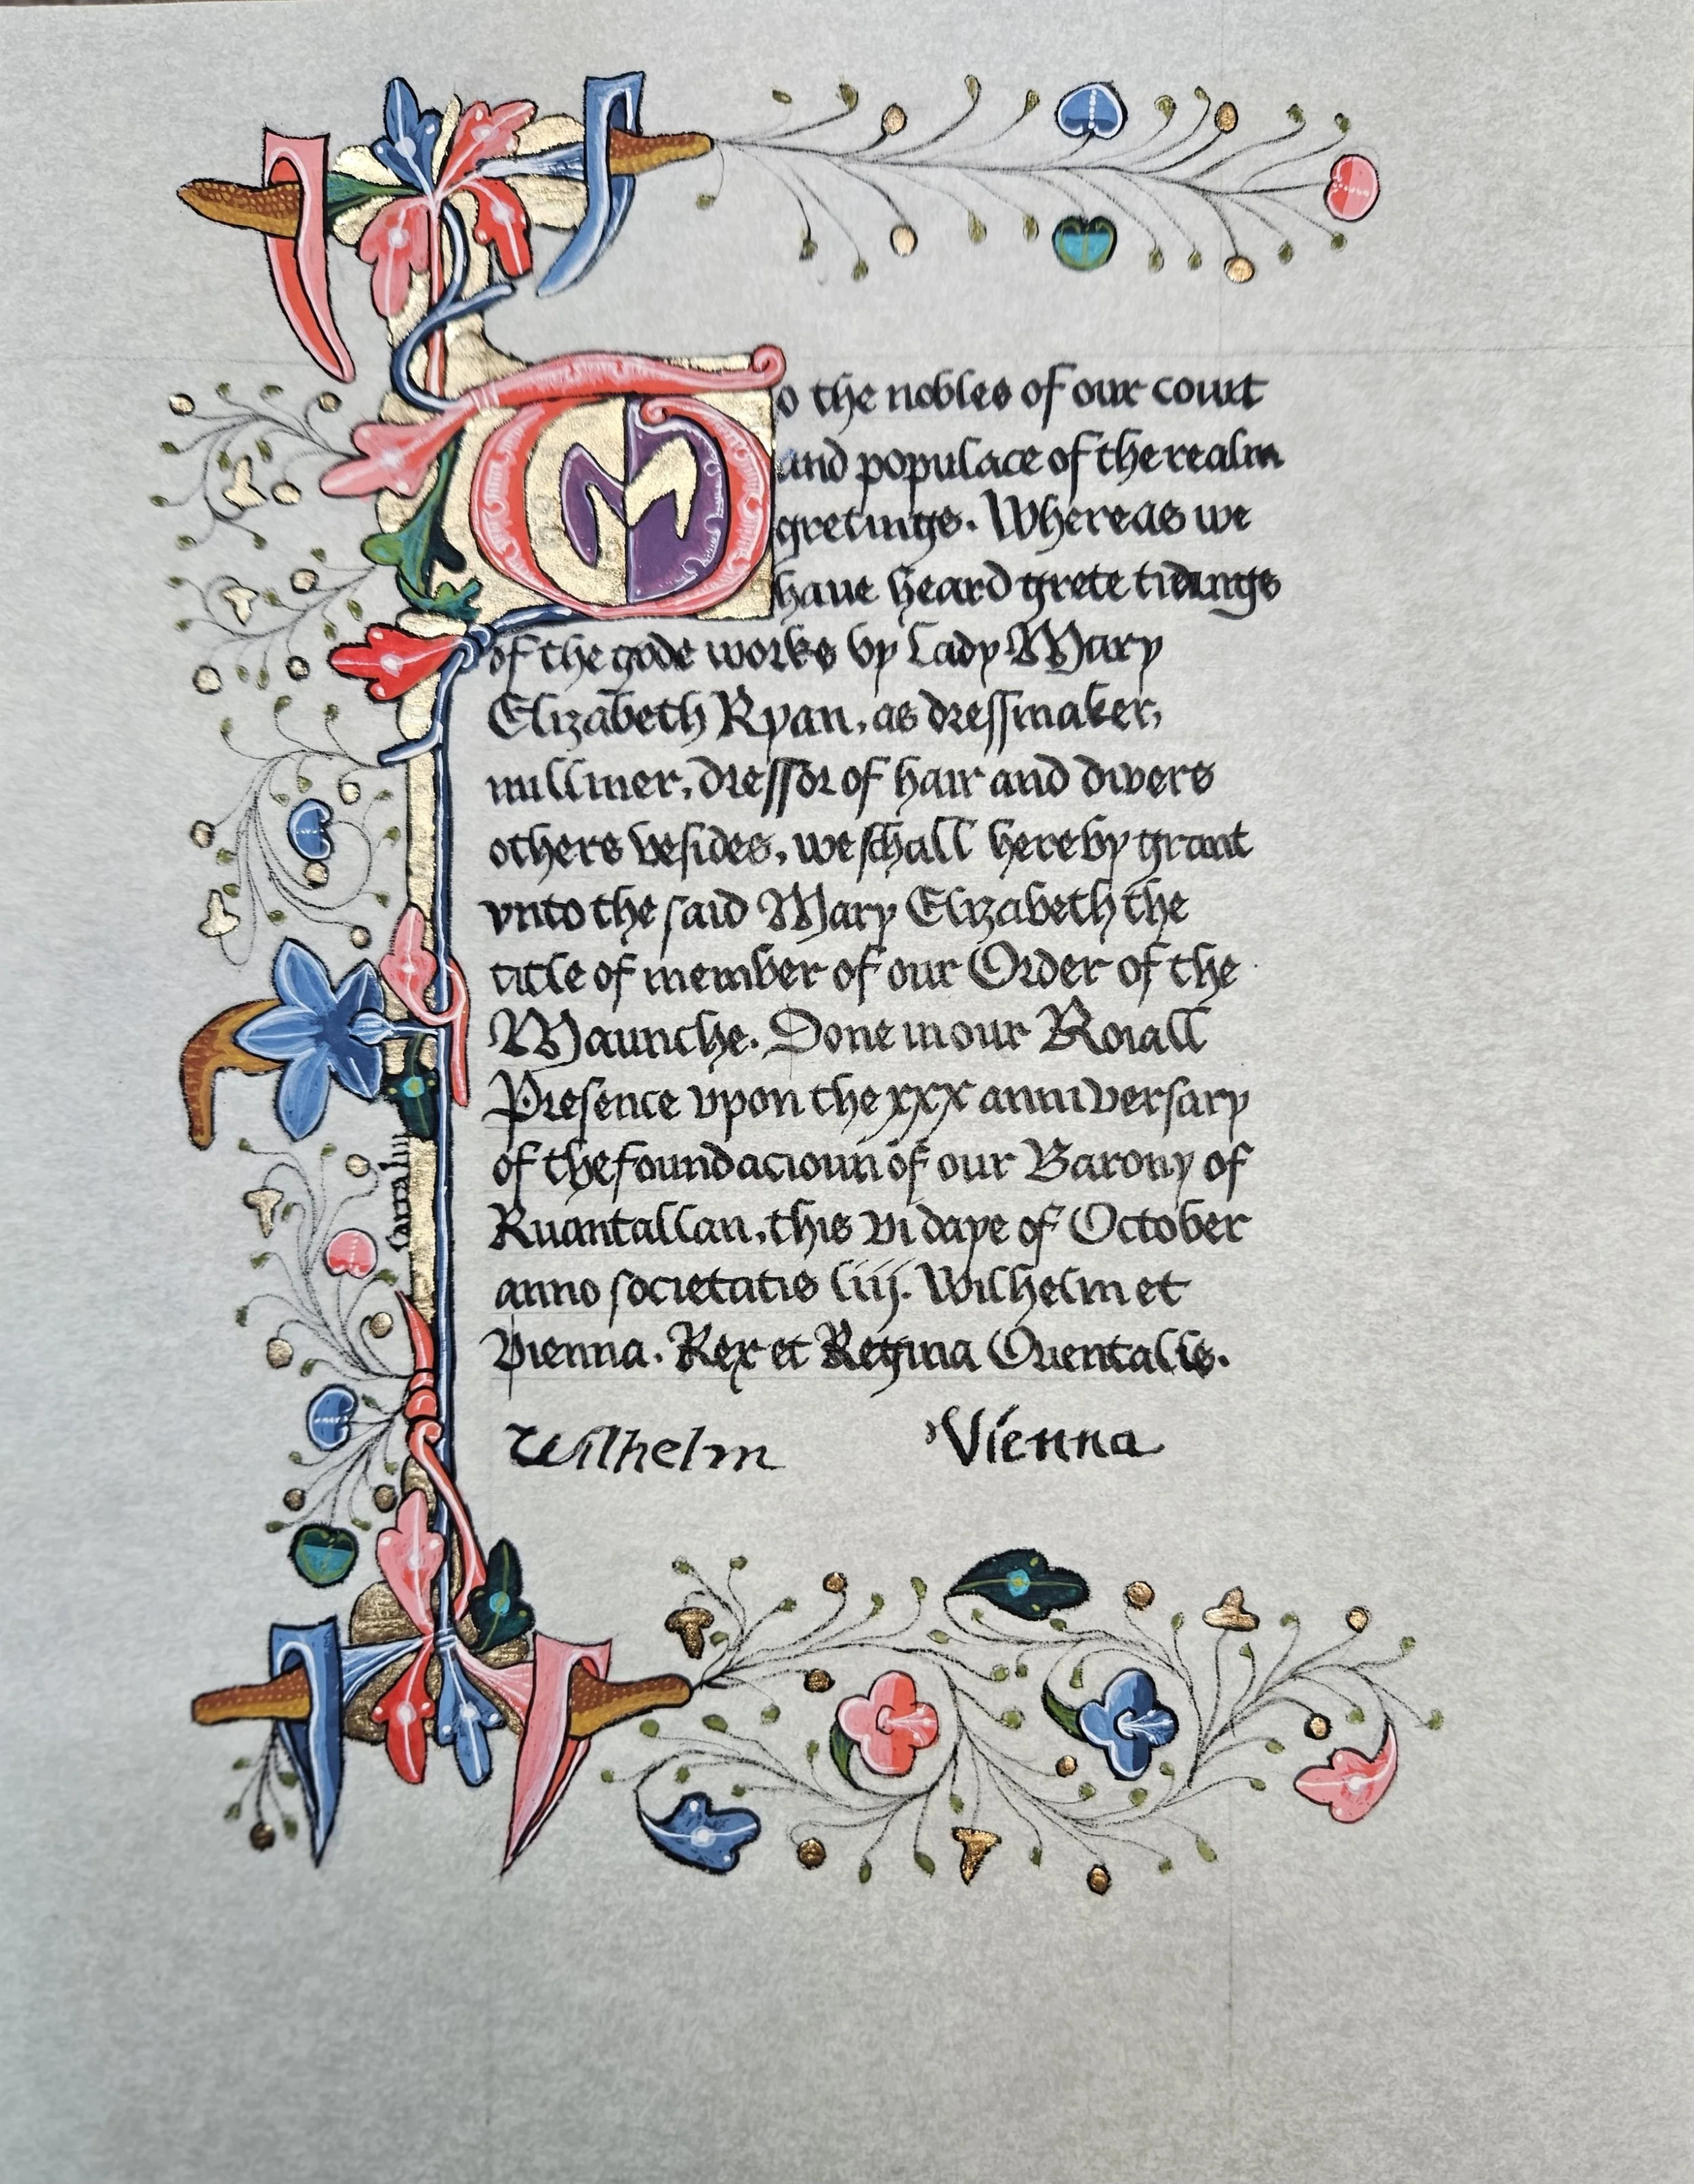 To the nobles of our court
and populace of the realm
gretings. Whereas we
have heard grete tidings
of the gode works by Lady Mary
Elizabeth Ryan, as dressmaker,
milliner, dressor of hair and divers
others besides, we schall hereby grant
vnto the said Mary Elizabeth the
title of member of our Order of the
Maunche. Done in our Roiall
Presence vpon the xxx anniversary
of the foundacioun of our Barony of
Ruantallan, this vi daye of October
anno societatis liij. Wilhelm et
Vienna. Rex et Regina Orientalis.
Wilhelm Vienna